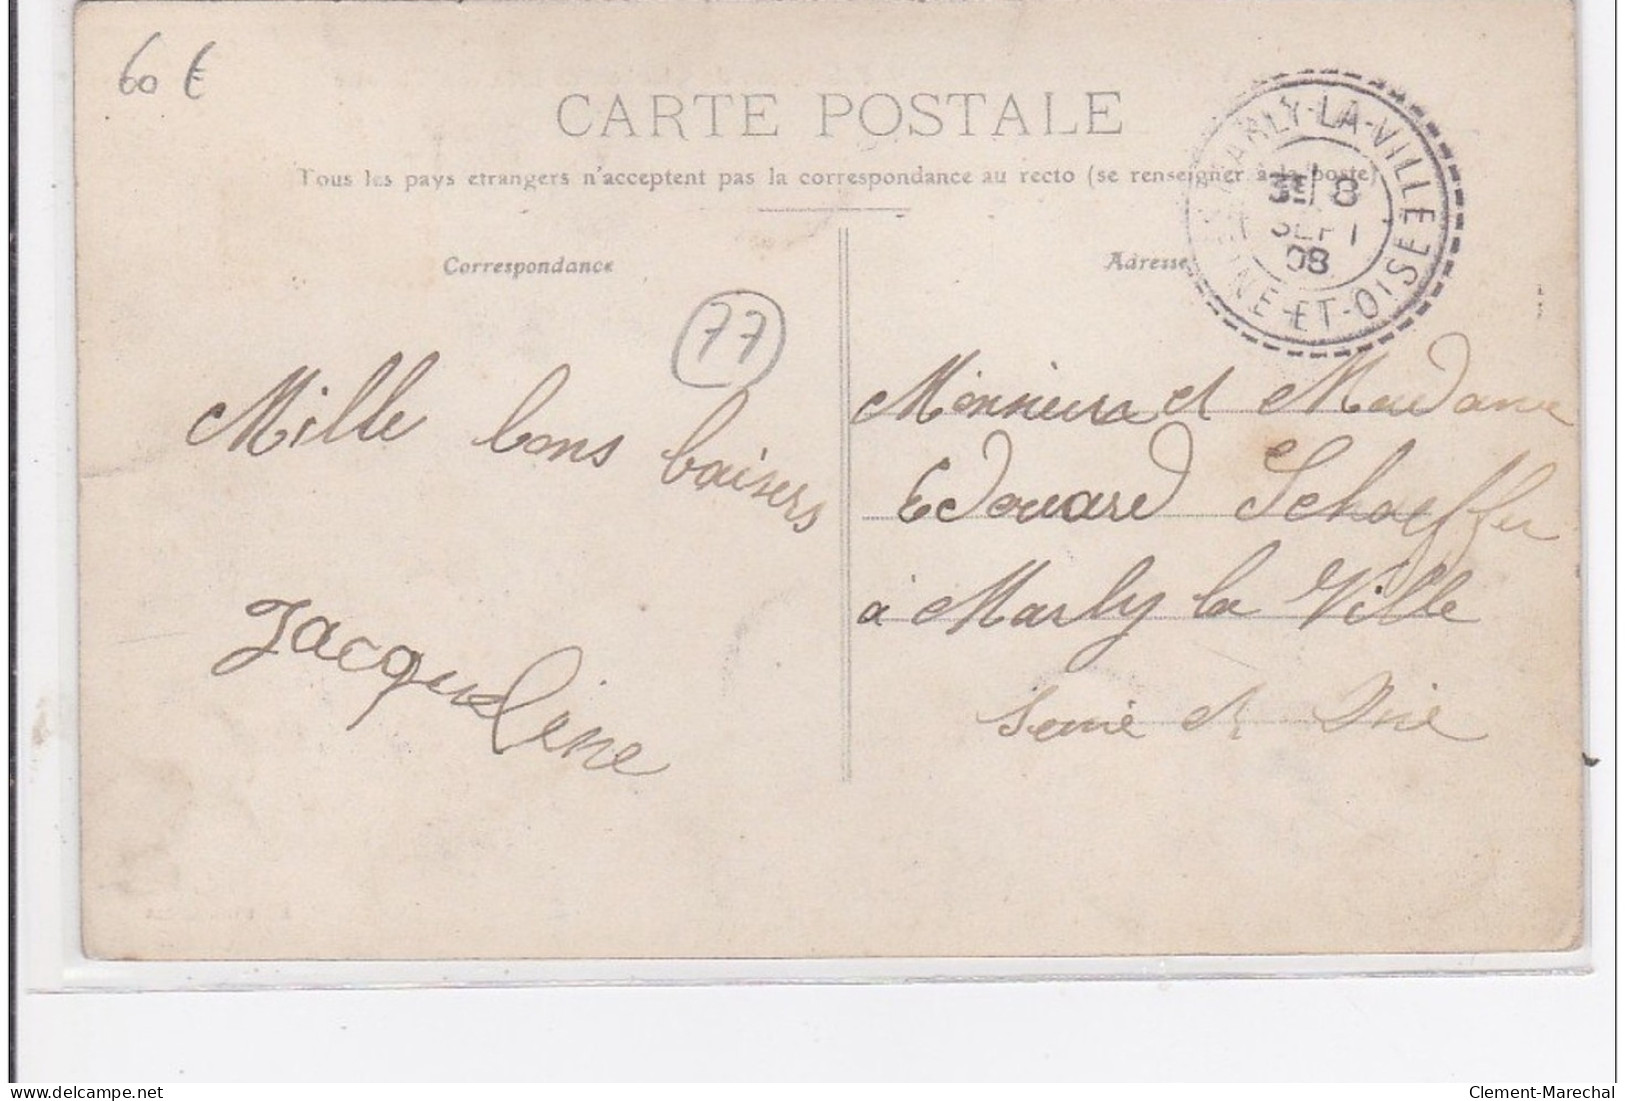 60 €
CARTE POSTALE
Tous les pays etrangers n'acceptent pas la correspondance au recto (se renseigner à la poste)
MARLY-LA-VILLE
8
SEPT
08
SEINE-ET-OISE
Correspondance
Adresse
77
Mille bons baisers
Jacqueline
Monsieur et Madame
Edouard Schaeffer
à Marly la Ville
Seine et Oise
delcampe.net
Clement-Marechal